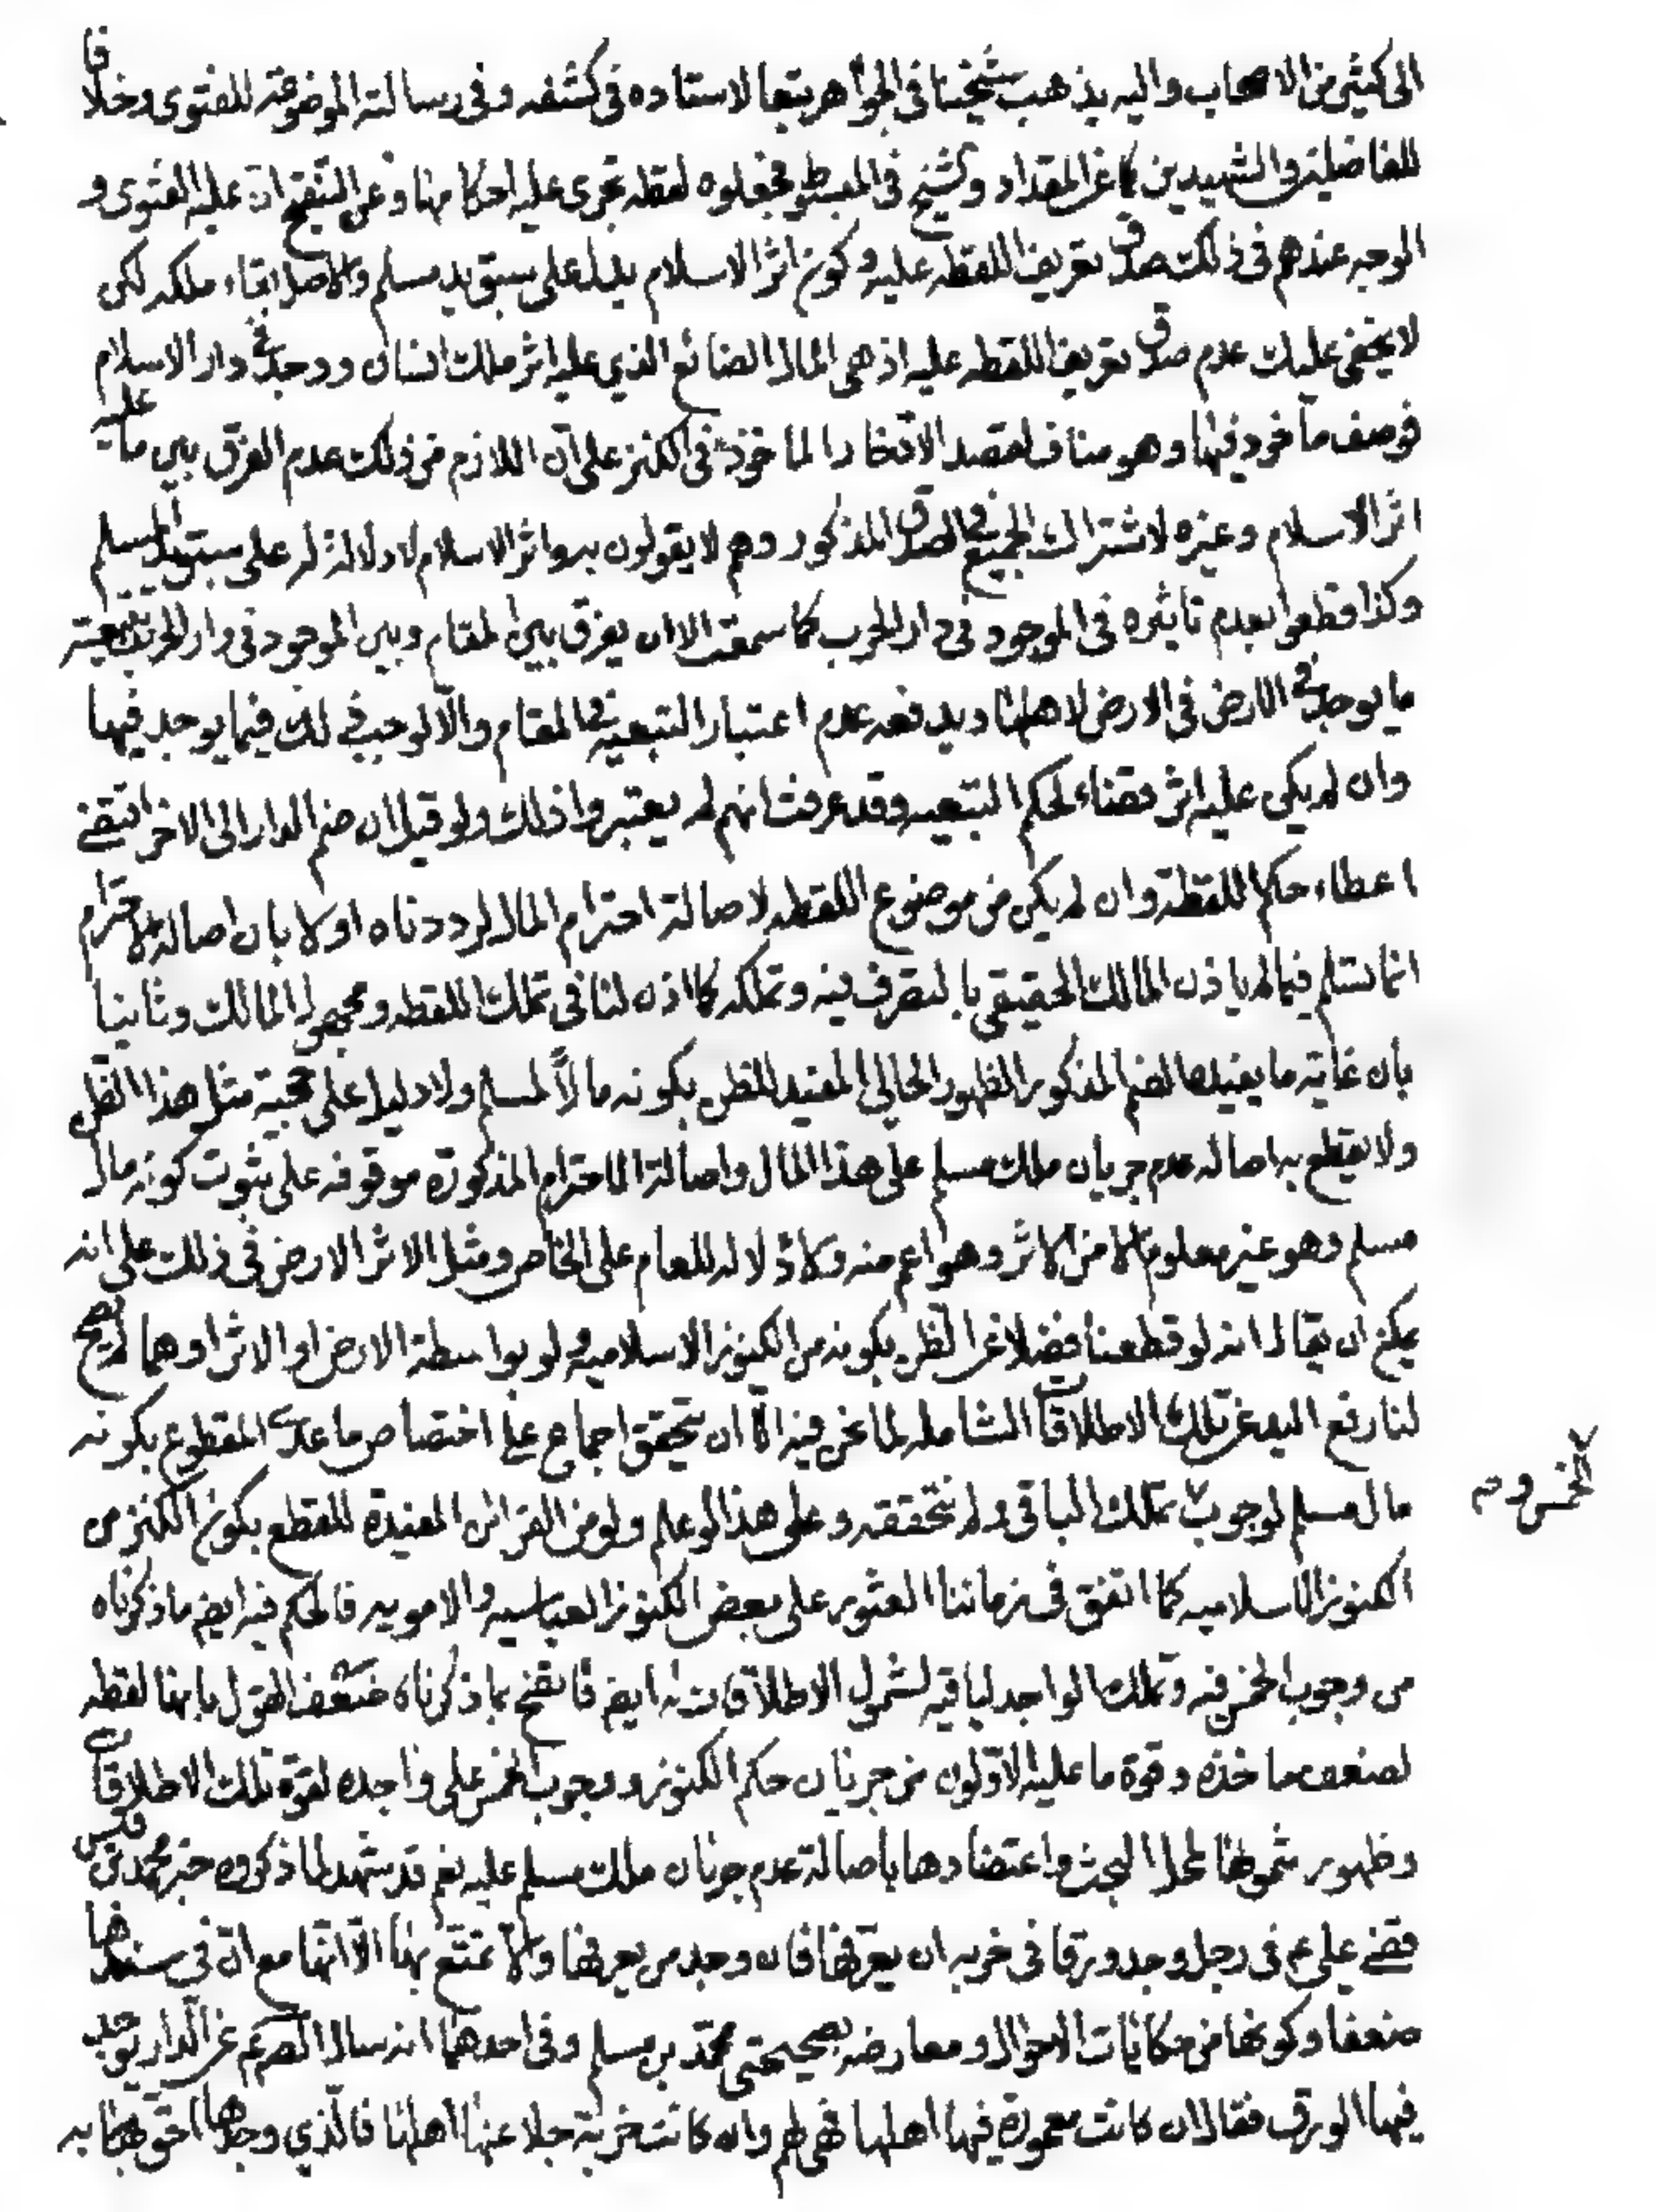 الى كثير من الاصحاب واليه يذهب شيخنا في الجواهر تبعا لاستاده في كشفه وفي رسالته الموضوعة للفتوى وخلافا
للفاضلين والشهيدين كما عن المقداد والشيخ في المبسوط فجعلوه لقطه تجري عليه احكامها وعن التنقيح ان عليه الفتوى و
الوجه عندهم في ذلك صدق تعريف اللقطه عليه وكون اثر الاسلام يدل على سبق يد مسلم والاصل بقاء ملكه لكن
لا يخفى عليك عدم صدق تعريف اللقطه عليه اذ هي المال الضائع الذي عليه اثر ملك انسان ووجد في دار الاسلام
فوصف ماخوذ فيها وهو مناف لقصد الادخار الماخوذ في الكنز على ان اللازم من ذلك عدم الفرق بين ما عليه
اثر الاسلام وغيره لاشتراك الجميع في الصدق المذكور وهم لا يقولون به واثر الاسلام لا دلالة له على سبق يد المسلم
وكذا قطعوا بعدم تاثيره في الموجود في دار الحرب كما سمعت الا ان يفرق بين المقام وبين الموجود في دار الحرب بتبعية
ما يوجد في الارض في الارض لاهلها ويدفعه عدم اعتبار التبعية في المقام والا لوجب ذلك فيما يوجد فيها
وان لم يكن عليه اثر قضاء لحكم التبعيه وقد عرفت انهم لم يعتبروا ذلك ولو قيل ان ضم الدار الى الاخر اتقضى
اعطاء حكم اللقطة وان لم يكن من موضوع اللقطه لاصالة احترام المال لرددناه اولا بان اصالة الاحترام
انما تسلم فيما لم ياذن المالك الحقيقي بالتصرف فيه وتملكه كما اذن لنا في تملك اللقطه ومجهول المالك وثانيا
بان غاية ما يفيده الضم المذكور الظهور الحالي المفيد للظن بكونه مالاً لمسلم ولا دليل على حجية مثل هذا الظن
ولا يقطع به اصاله عدم جريان ملك مسلم على هذا المال واصالة الاحترام المذكورة موقوفه على ثبوت كونه مال
مسلم وهو غير معلوم الا من الاثر وهو اعم منه ولا دلاله للعام على الخاص ومثل الاثر الارض في ذلك على انه
يمكن ان يقال انه لو قطعنا فضلا عن الظن بكونه من الكنوز الاسلامية ولو بواسطة الارض او الاثر او هما لم يصح
لنا رفع اليد عن تلك الاطلاقات الشامله لما نحن فيه الا ان يتحقق اجماع على اختصاص ما عدى المقطوع بكونه
مال مسلم لوجوب الخمس وتملك الباقي ولم نتحققه وعلى هذا لو علم ولو من القرائن المفيدة للقطع بكون الكنز من
الكنوز الاسلاميه كما اتفق في زماننا العثور على بعض الكنوز العباسيه والامويه فالحكم فيه ايض ما ذكرناه
من وجوب الخمس فيه وتملك الواجد لباقيه لشمول الاطلاقات له ايض فاتضح بما ذكرناه ضعف القول بانها لقطه
لضعف ماخذه وقوة ما عليه الاولون من جريان حكم الكنوز ووجوب الخمس على واجده لقوة تلك الاطلاقات
وظهور شمولها لمحل البحث واعتضادها باصالة عدم جريان ملك مسلم عليه نعم قد يشهد لما ذكروه خبر محمد بن قيس
قضى علي ع في رجل وجد ورقا في خربه ان يعرفها فان وجد من يعرفها والا تمتع بها الا انها مع ان في سندها
ضعفا وكونها من حكايات الاحوال ومعارضه بصحيحتي محمد بن مسلم وفي احدهما انه سال الص ع عن الدار يوجد
فيها الورق فقال ان كانت معمورة فيها اهلها فهي لهم وان كانت خربة جلا عنها اهلها فالذي وجدها احق بها به